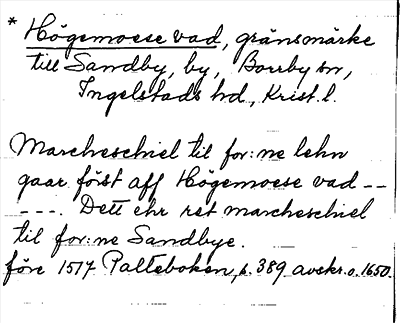 * Högemoese vad, gränsmärke
till Sandby, by, Borrby sn,
Ingelstads hd, Krist. l.
Marcheschiel til for:ne lehn
gaar först aff Högemoese vad --
---. Dett ehr ret marcheschiel
til for:ne Sandbye.
före 1517 Palteboken, s. 389 avskr. o. 1650.